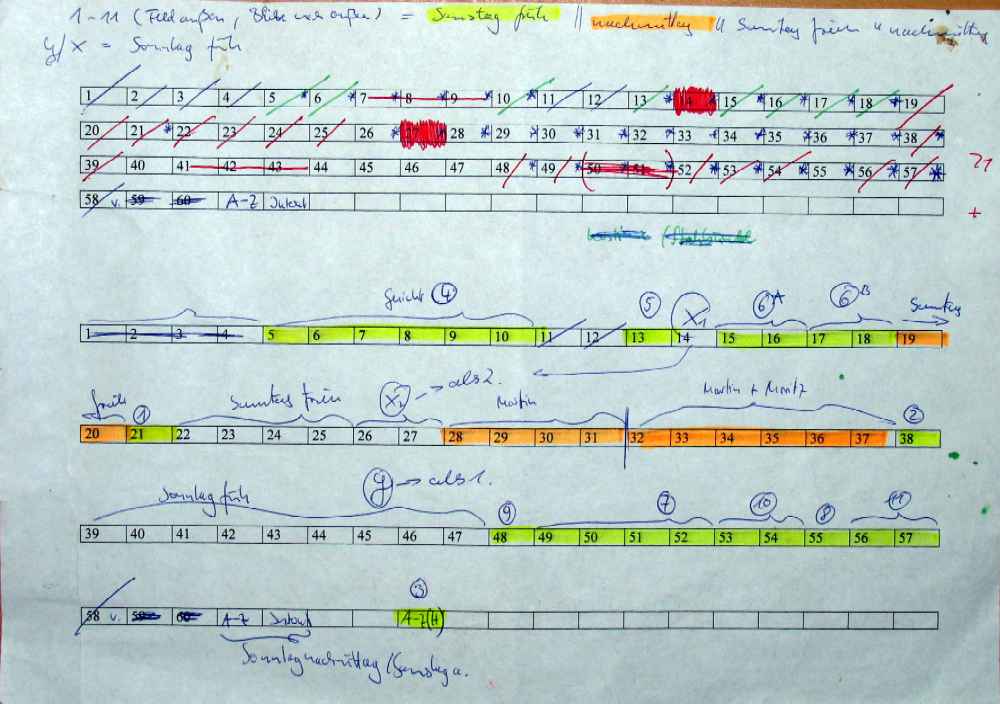 1-11 (Feld außen, Blick nach außen) = Samstag früh || nachmittag || Samstag früh || nachmittag
y/x = Sonntag früh
1 2 3 4 5 6 7 8 9 10 11 12 13 14 15 16 17 18 19
20 21 22 23 24 25 26 27 28 29 30 31 32 33 34 35 36 37 38
39 40 41 42 43 44 45 46 47 48 49 50 51 52 53 54 55 56 57
21
58 v. 59 60 A-Z
+
4 5 X1 6A 6B Samstag
1 2 3 4 5 6 7 8 9 10 11 12 13 14 15 16 17 18 19
früh 1 Samstag früh X2 → als 2. Martin Martin + Moritz 2
20 21 22 23 24 25 26 27 28 29 30 31 32 33 34 35 36 37 38
Sonntag früh y → als 1. 9 7 10 8 11
39 40 41 42 43 44 45 46 47 48 49 50 51 52 53 54 55 56 57
3
58 v. 59 60 A-Z A-Z(H)
Sonntagnachmittag/Samstag a.